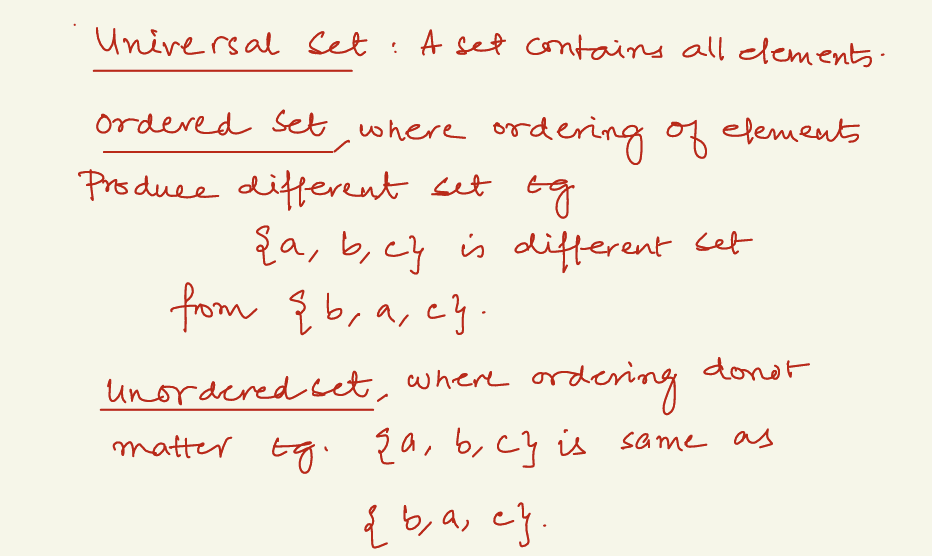 Universal Set : A set contains all elements.
ordered set, where ordering of elements
Produce different set eg
{a, b, c} is different set
from {b, a, c}.
Unordered set, where ordering donot
matter eg. {a, b, c} is same as
{b, a, c}.